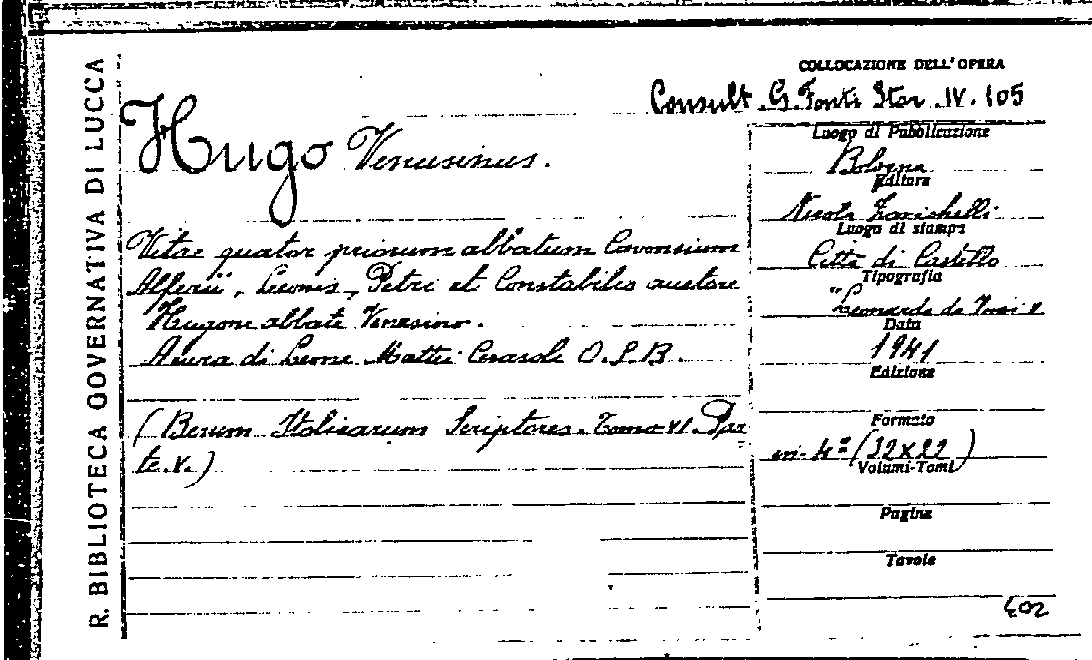 R. BIBLIOTECA GOVERNATIVA DI LUCCA
COLLOCAZIONE DELL'OPERA
Consult. G. Fonti Stor. IV. 105
Hugo Venusinus.
Vitae quator priorum abbatum Cavensium
Alferii, Leonis, Petri et Constabilis auctore
Hugone abbate Venusino.
A cura di Leone Mattei Cerasoli O.S.B.
(Rerum Italicarum Scriptores. Tomo VI. Par
te. V.)
Luogo di Pubblicazione
Bologna
Editore
Nicola Zanichelli
Luogo di stampa
Città di Castello
Tipografia
"Leonardo da Vinci"
Data
1941
Edizione
Formato
in-4º (32x22)
Volumi-Tomi
Pagine
Tavole
402